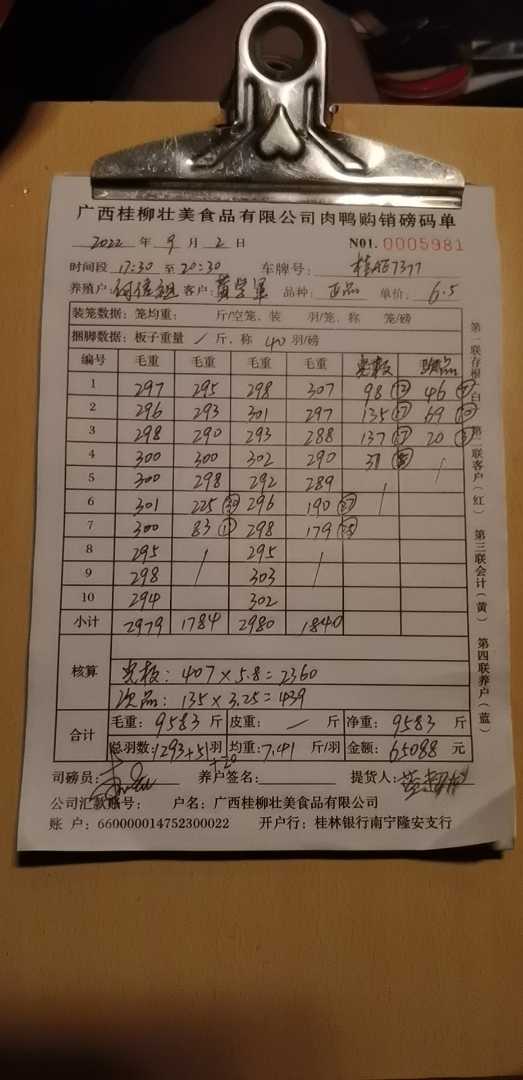 广西桂柳壮美食品有限公司肉鸭购销磅码单
2022 年 9 月 2 日 NO1. 0005981
时间段 17:30 至 20:30 车牌号:
养殖户: 客户: 黄 品种: 正品 单价: 6.5
装笼数据: 笼均重: 斤/空笼、装 羽/笼、称 笼/磅
捆脚数据: 板子重量 / 斤、称 40 羽/磅
编号 毛重 毛重 毛重 毛重 光板 次品
1 297 295 298 307 98 46
2 296 293 301 297 135 69
3 298 290 293 288 137 20
4 300 300 302 290 37 /
5 300 298 292 289 /
6 301 225 296 190
7 300 83 298 179
8 295 / 295 /
9 298 303
10 294 302
小计 2979 1784 2980 1840
核算
光板: 407 × 5.8 = 2360
次品: 135 × 3.25 = 439
合计
毛重: 9583 斤 皮重: / 斤 净重: 9583 斤
总羽数: 1293+51 羽 均重: 7.41 斤/羽 金额: 65088 元
+20
司磅员: 养户签名: 提货人:
公司汇款账号: 户名: 广西桂柳壮美食品有限公司
账 户: 660000014752300022 开户行: 桂林银行南宁隆安支行
第一联存根(白) 第二联客户(红) 第三联会计(黄) 第四联养户(蓝)